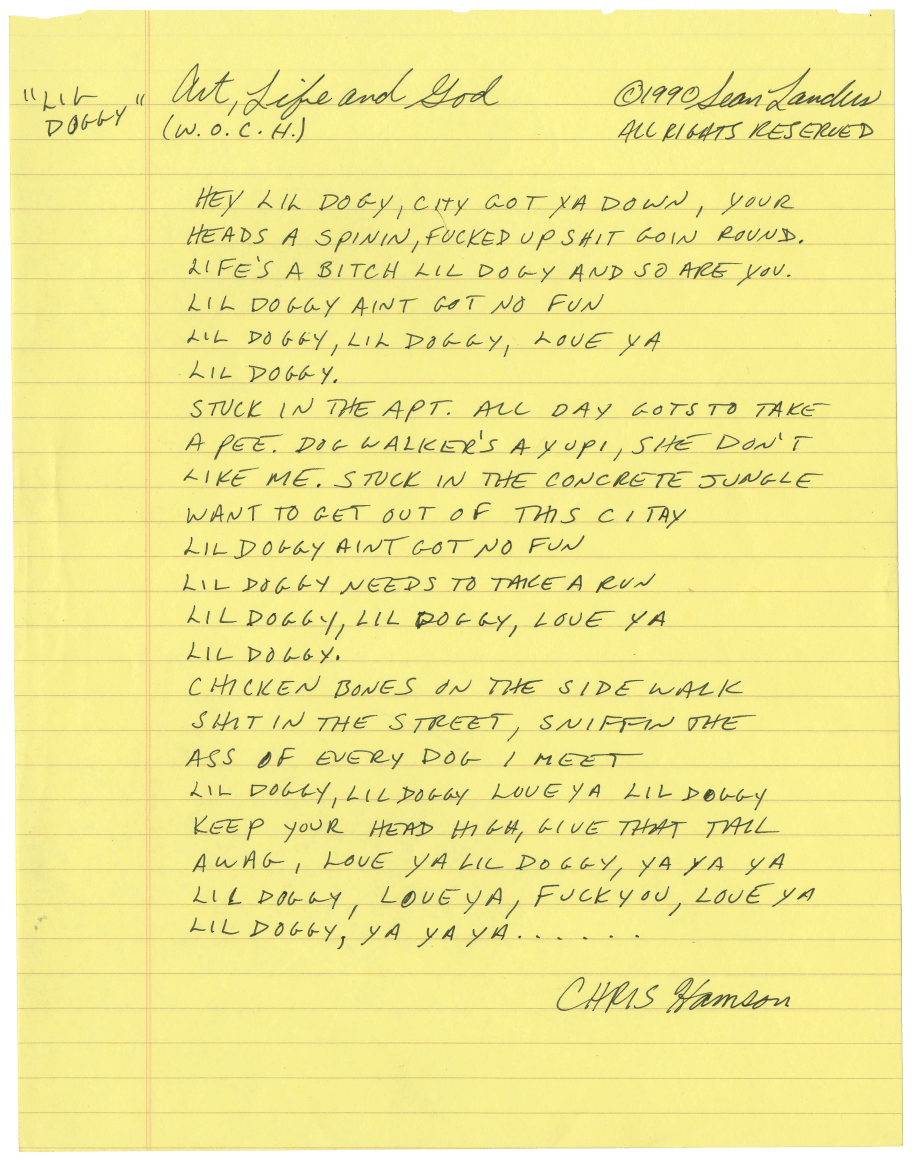 "LIL DOGGY"
Art, Life and God
(W.O.C.H.)
©1990 Sean Landers
ALL RIGHTS RESERVED
HEY LIL DOGY, CITY GOT YA DOWN, YOUR
HEADS A SPININ, FUCKED UP SHIT GOIN ROUND.
LIFE'S A BITCH LIL DOGY AND SO ARE YOU.
LIL DOGGY AINT GOT NO FUN
LIL DOGGY, LIL DOGGY, LOVE YA
LIL DOGGY.
STUCK IN THE APT. ALL DAY GOTS TO TAKE
A PEE. DOG WALKER'S A YUPI, SHE DON'T
LIKE ME. STUCK IN THE CONCRETE JUNGLE
WANT TO GET OUT OF THIS CITAY
LIL DOGGY AINT GOT NO FUN
LIL DOGGY NEEDS TO TAKE A RUN
LIL DOGGY, LIL DOGGY, LOVE YA
LIL DOGGY.
CHICKEN BONES ON THE SIDE WALK
SHIT IN THE STREET, SNIFFIN THE
ASS OF EVERY DOG I MEET
LIL DOGGY, LIL DOGGY LOVE YA LIL DOGGY
KEEP YOUR HEAD HIGH, GIVE THAT TAIL
AWAG, LOVE YA LIL DOGGY, YA YA YA
LIL DOGGY, LOVE YA, FUCK YOU, LOVE YA
LIL DOGGY, YA YA YA......
CHRIS Hamson